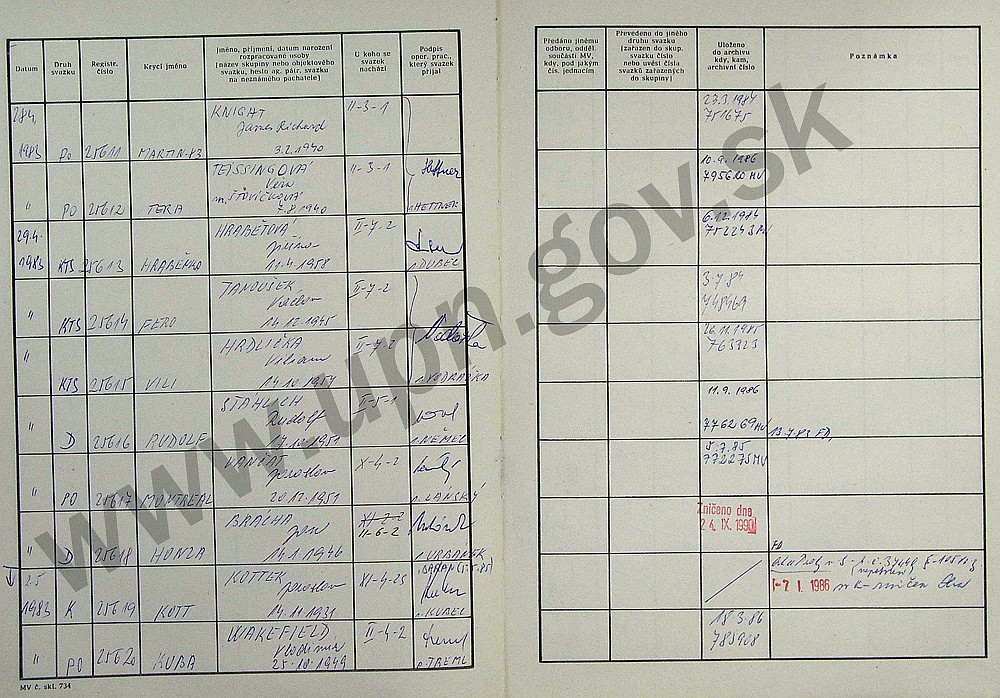 Datum
Druh svazku
Registr. číslo
Krycí jméno
Jméno, příjmení, datum narození rozpracované osoby
(název skupiny nebo objektového svazku, heslo ag. pátr. svazku na neznámého pachatele)
U koho se svazek nachází
Podpis oper. prac., který svazek přijal
Předáno jinému odboru, odděl. součásti MV, kdy, pod jakým čís. jednacím
Převedeno do jiného druhu svazku (zařazen do skup. svazku číslo nebo uvést čísla svazků zařazených do skupiny)
Uloženo do archivu kdy, kam, archivní číslo
Poznámka
28.4. 1983 PO 25611 MARTIN-83
KNIGHT
James Richard
3.2.1940
II-3-1
27.3.1984
751675
" PO 25612 TERA
TEISSINGOVÁ
Vera
Šťovíčková
7.8.1940
II-3-1
HETTNER
10.9.1986
795610 MV
29.4. 1983 KTS 25613 HRABĚNKO
HRABĚTOVÁ
11.4.1958
II-7-2
DUBEC
6.12.1984
752243
" KTS 25614 FERO
JANOUSEK
Václav
14.12.1945
II-7-2
3.7.84
748969
" KTS 25615 VILI
HRDLIČKA
Viliam
14.10.1954
II-7-2
VODRAŽKA
26.11.1985
763323
" D 25616 RUDOLF
Rudolf
1951
II-5-1
NĚMEC
11.9.1986
776269 MV
13.7.83 FD,
" PO 25617 MONTREAL
VANČAT
Jaroslav
20.12.1951
X-4-2
LÁNSKÝ
5.7.85
772275 MV
" D 25618 HONZA
BRÁCHA
Jan
14.1.1946
II-6-2
URBÁNEK
Zničeno dne
24. IX. 1990
FD
2.5. 1983 K 25619 KOTT
KOTTEK
Jaroslav
14.11.1931
81-4-23
KUBEC
-7. I. 1986
" PO 25620 KUBA
WAKEFIELD
Vladimir
25.10.1949
II-4-2
TREML
18.3.86
785908
MV č. skl. 734
www.upn.gov.sk